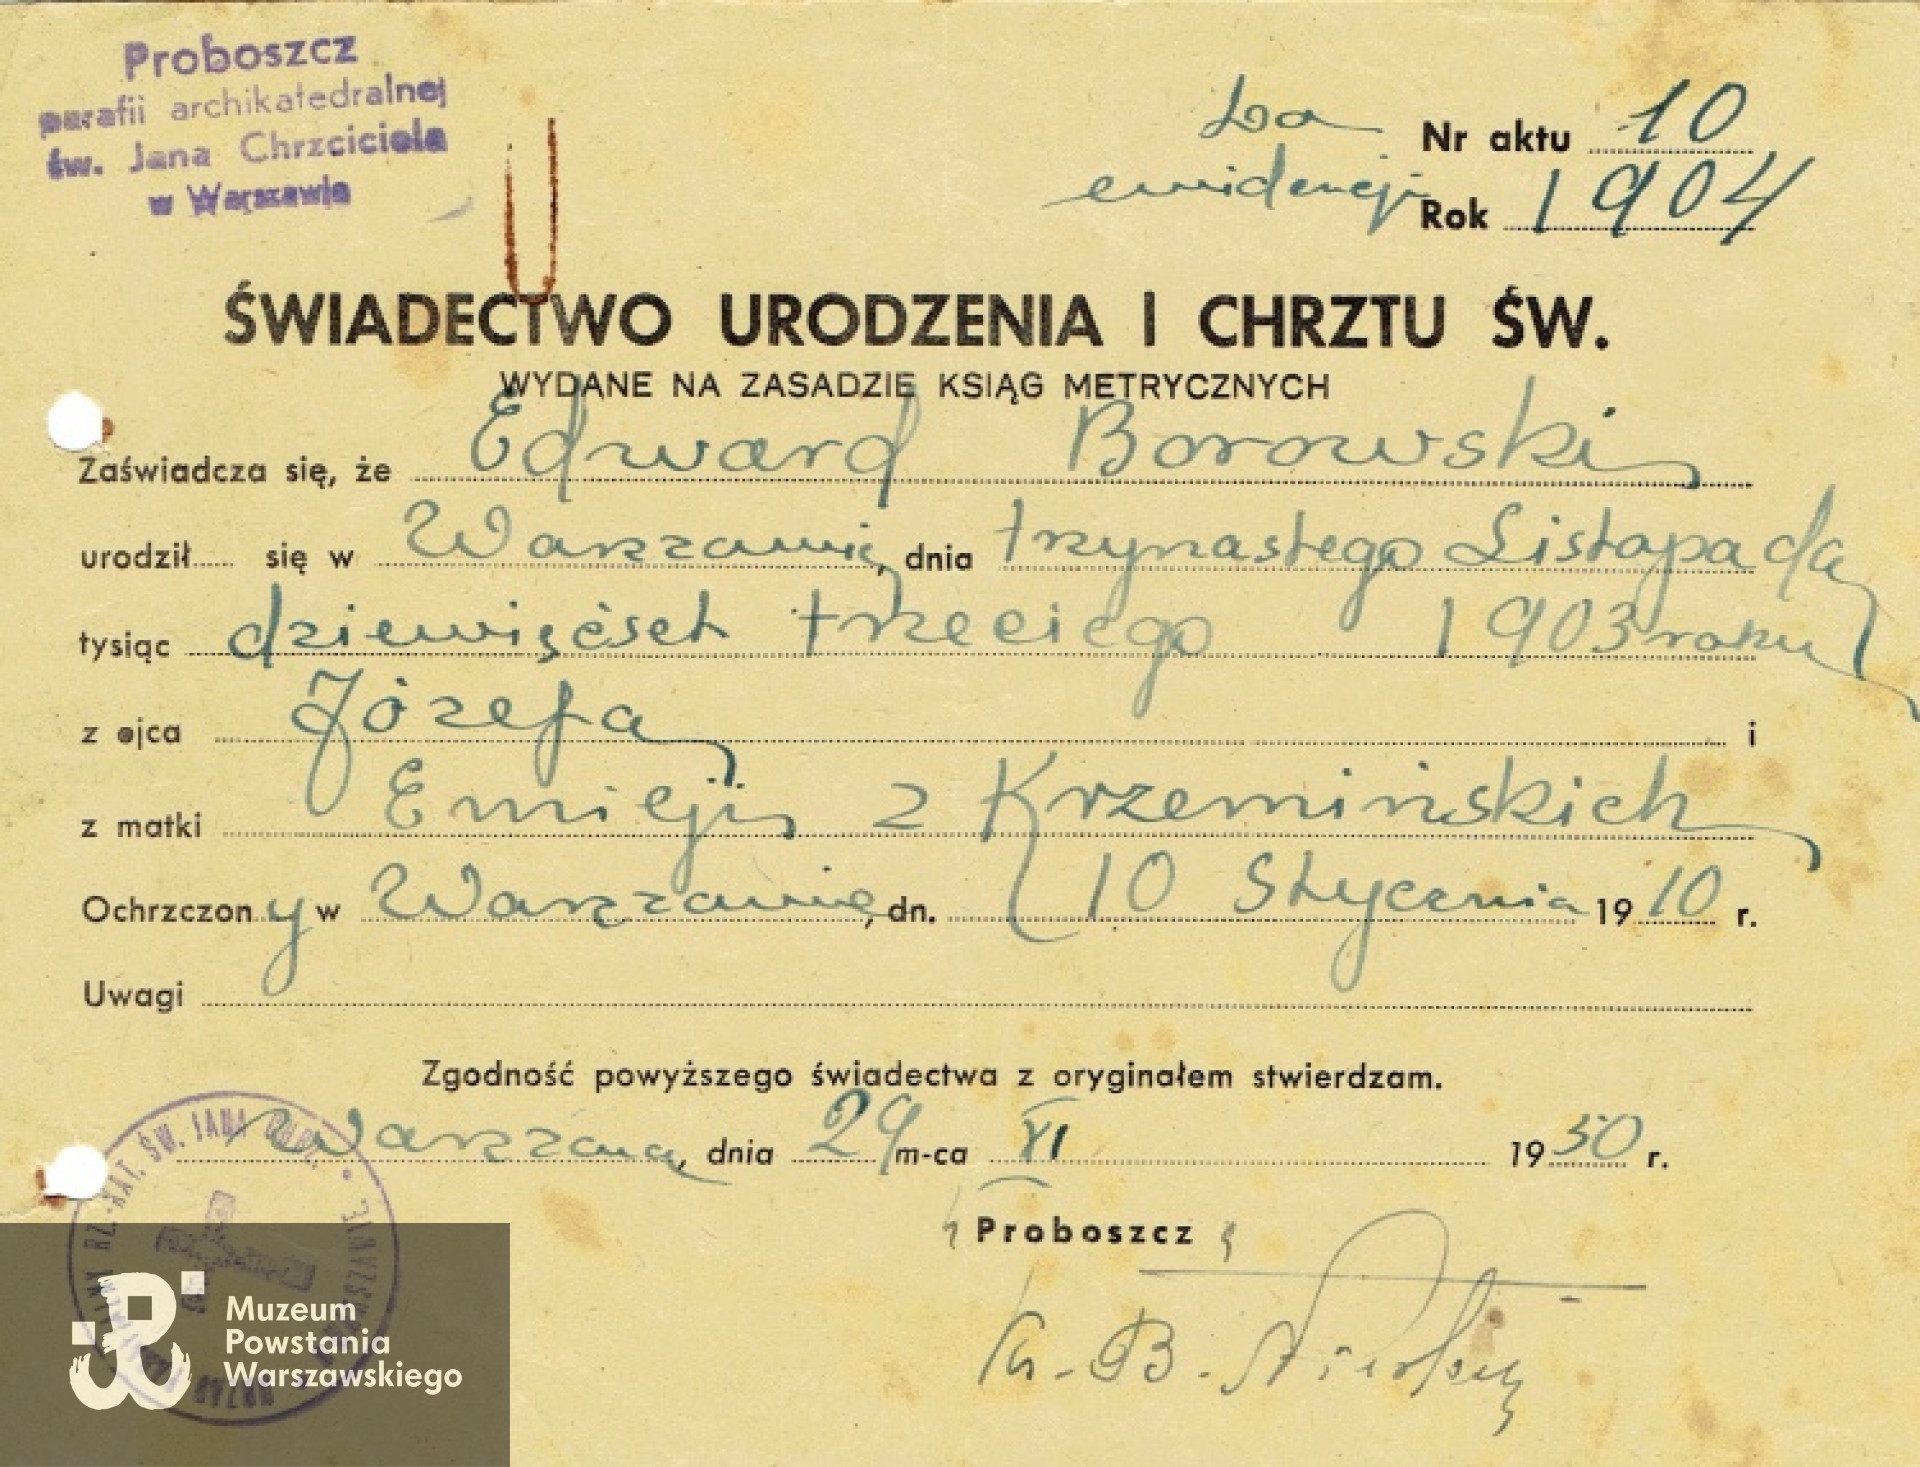 Proboszcz
parafii archikatedralnej
św. Jana Chrzciciela
w Warszawie
ewidencji
Nr aktu 10
Rok 1904
ŚWIADECTWO URODZENIA I CHRZTU ŚW.
WYDANE NA ZASADZIE KSIĄG METRYCZNYCH
Zaświadcza się, że Edward Borowski
urodził się w Warszawie, dnia trzynastego Listopada
tysiąc dziewięćset trzeciego 1903 roku
z ojca Józefa i
z matki Emilji z Krzemińskich
Ochrzczony w Warszawie, dn. 10 Stycznia 1910 r.
Uwagi
Zgodność powyższego świadectwa z oryginałem stwierdzam.
Warszawa, dnia 29 m-ca XI 1950 r.
Proboszcz
B.
ŚW. JANA
Muzeum
Powstania
Warszawskiego